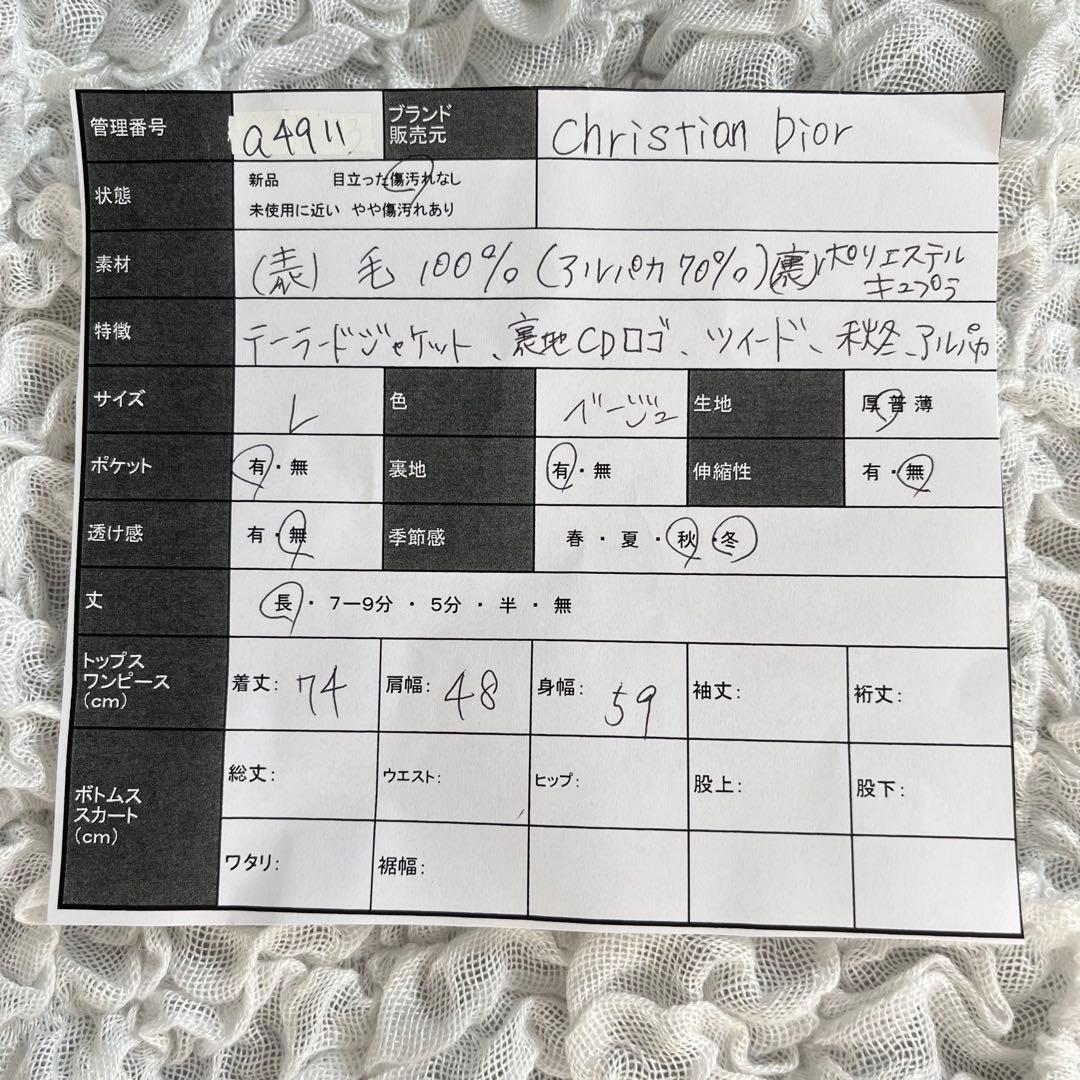 管理番号 a4911 ブランド 販売元 Christian Dior
状態 新品 目立った傷汚れなし
未使用に近い やや傷汚れあり
素材 (表) 毛 100% (アルパカ70%) (裏) ポリエステル
キュプラ
特徴 テーラードジャケット、裏地CDロゴ、ツイード、秋冬、アルパカ
サイズ L 色 ベージュ 生地 厚 普 薄
ポケット 有・無 裏地 有・無 伸縮性 有・無
透け感 有・無 季節感 春・夏・秋・冬
丈 長・7ー9分・5分・半・無
トップス
ワンピース
(cm)
着丈: 74 肩幅: 48 身幅: 59 袖丈: 裄丈:
ボトムス
スカート
(cm)
総丈: ウエスト: ヒップ: 股上: 股下:
ワタリ: 裾幅: